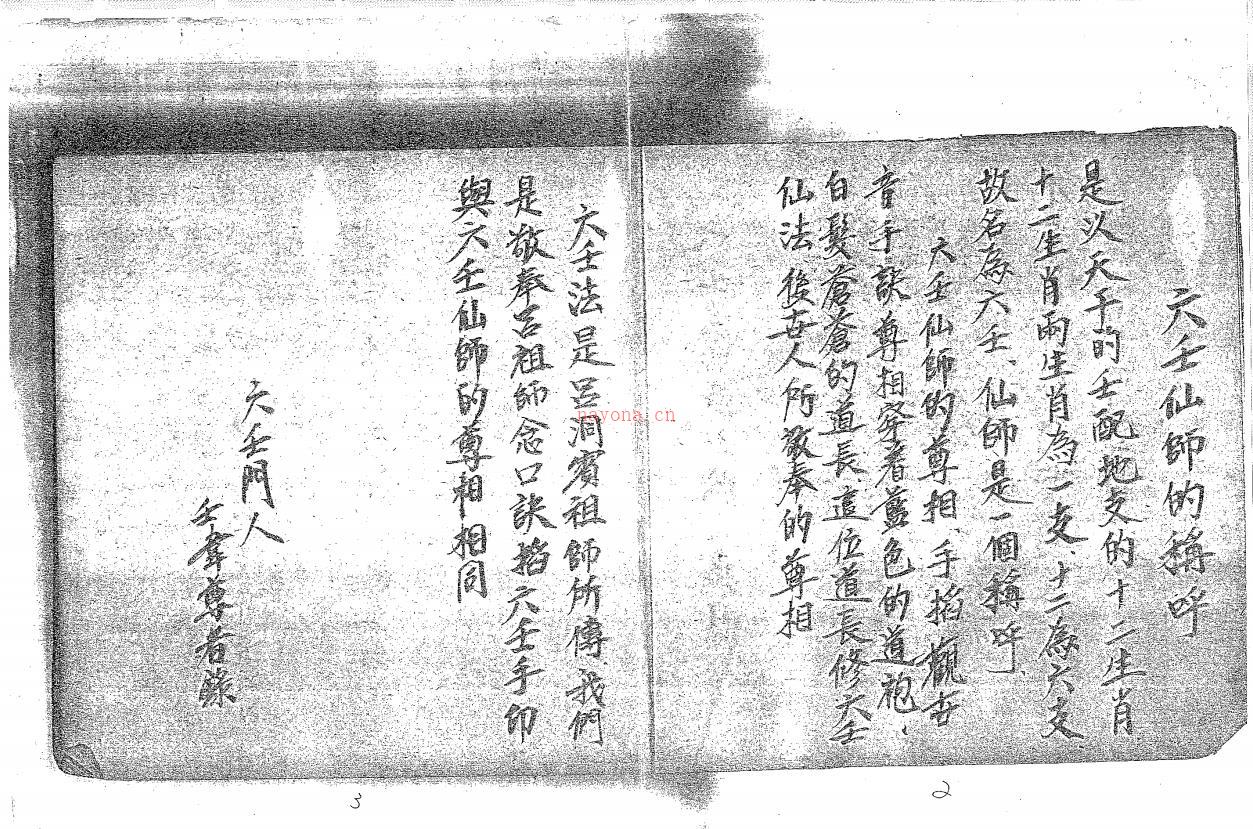 六壬仙師的稱呼
是以天干的壬配地支的十二生肖
十二生肖兩生肖為一支、十二為六支
故名為六壬、仙師是一個稱呼、
六壬仙師的尊相、手掐觀世
音手訣尊相穿着藍色的道袍、
白髮蒼蒼的道長、這位道長修六壬
仙法後世人所敬奉的尊相
2
六壬法是呂洞賓祖師所傳、我們
是敬奉呂祖師念口訣掐六壬手印
與六壬仙師的尊相相同
六壬門人
壬 尊者錄
3
nayona.cn